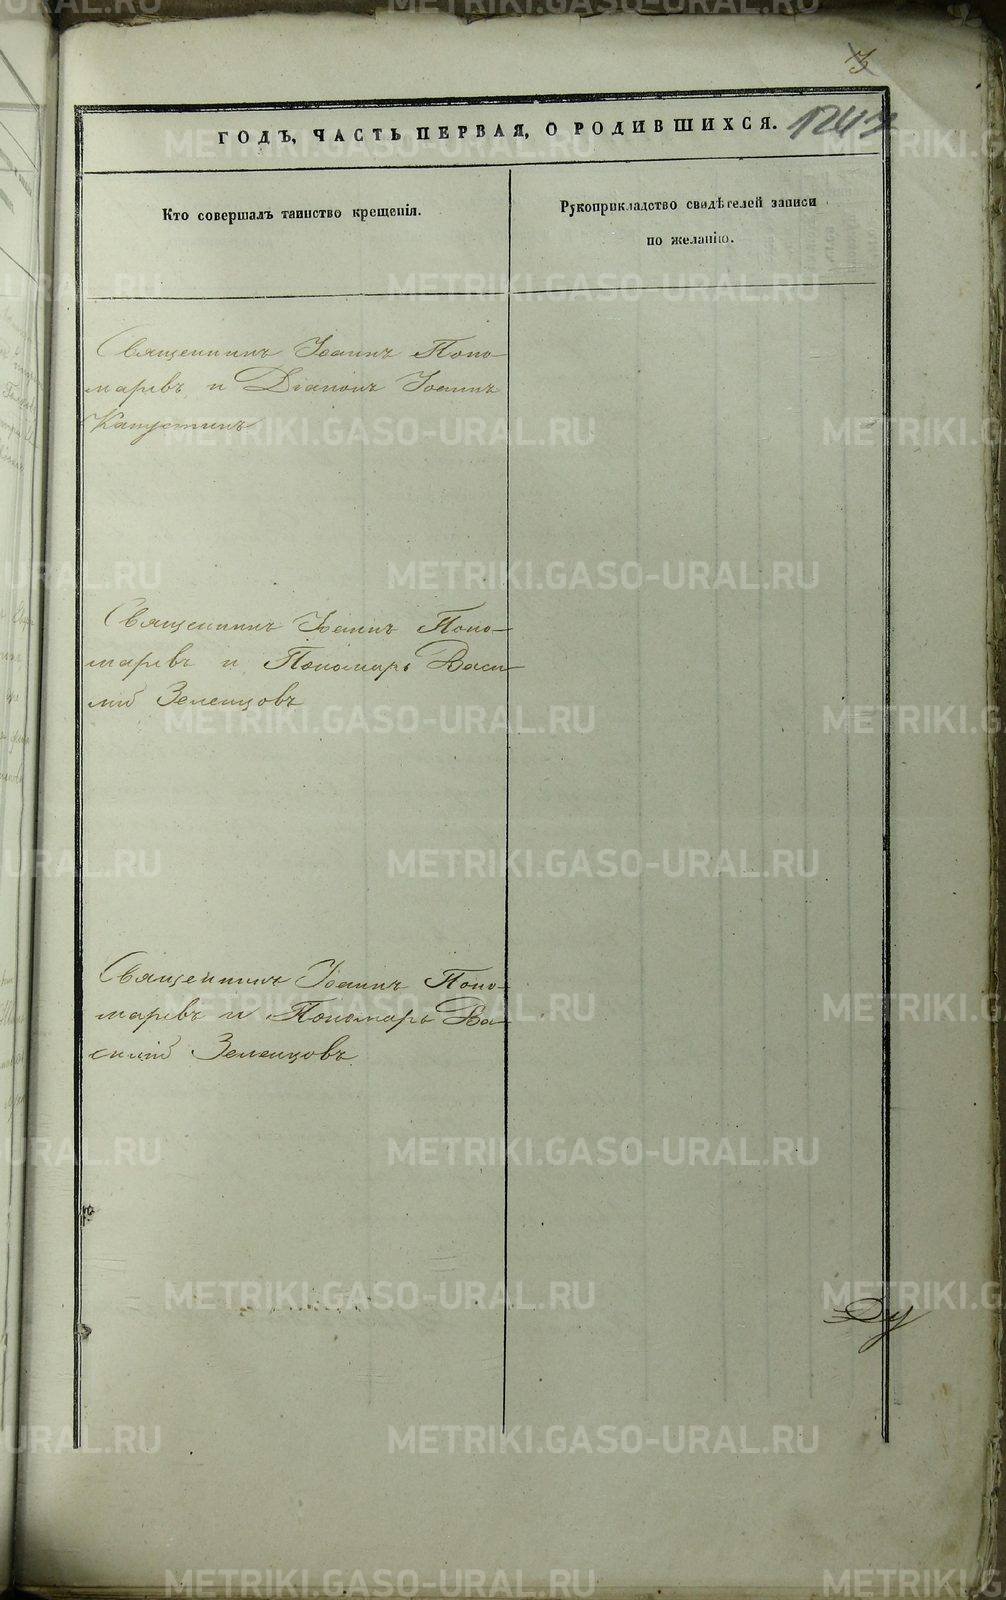 3
ГОДЪ, ЧАСТЬ ПЕРВАЯ, О РОДИВШИХСЯ.
Кто совершалъ таинство крещенія.
Рукоприкладство свидѣтелей записи
по желанію.
Священникъ Іоаннъ Поно-
маревъ и Діаконъ Іоаннъ
Капустинъ
Священникъ Іоаннъ Поно-
маревъ и Пономарь Васи-
лій Зеленцовъ
Священникъ Іоаннъ Поно-
маревъ и Пономарь Ва-
силій Зеленцовъ
METRIKI.GASO-URAL.RU